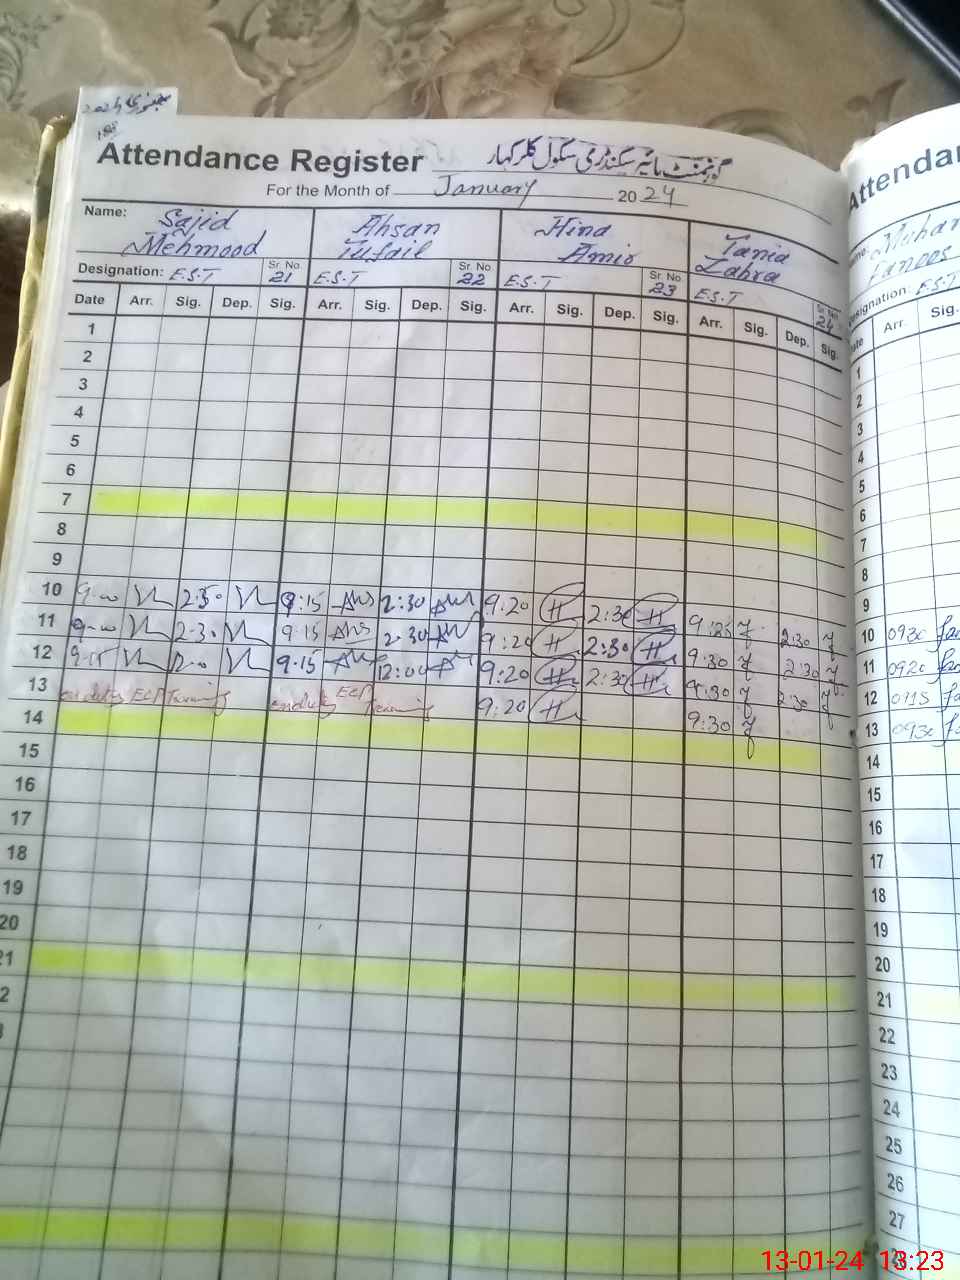 جنوری 2024
Attendance Register گورنمنٹ ہائیر سیکنڈری سکول
For the Month of January 2024
Name: Sajid Mehmood Ahsan Tufail Hina Amir Tania Zahra
Designation: E.S.T Sr. No. 21 E.S.T Sr. No. 22 E.S.T Sr. No. 23 E.S.T Sr. No. 24
Date Arr. Sig. Dep. Sig. Arr. Sig. Dep. Sig. Arr. Sig. Dep. Sig. Arr. Sig. Dep. Sig.
1
2
3
4
5
6
7
8
9
10 9-00 2:30 9:15 Ahs 2:30 9:20 H 2:30 H 9:25 2:30
11 9-00 2-30 9:15 Ahs 2:30 9:20 H 2:30 H 9:30 2:30
12 9:15 12-0 9:15 12:00 9:20 H 2:30 H 9:30 2:30
13 on duty ECP Training on duty ECP Training 9:20 H 9:30
14
15
16
17
18
19
20
21
Attendar
Muhar
Designation: E.S.T
Arr. Sig.
1
2
3
4
5
6
7
8
9
10 0930
11 0920
12 0915
13 0930
14
15
16
17
18
19
20
21
22
23
24
25
26
27
13-01-24 13:23